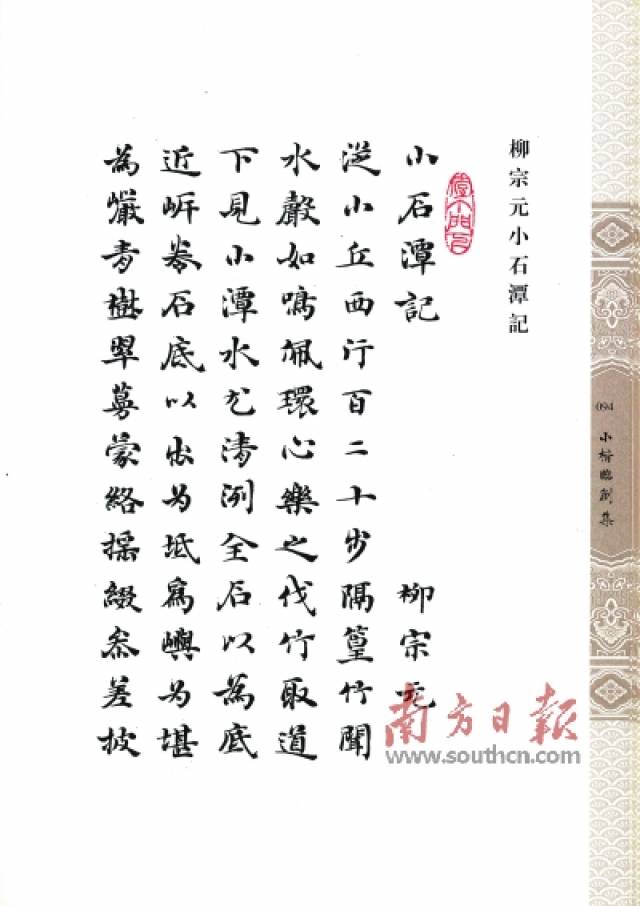 094
小楷臨創集
柳宗元小石潭記
小石潭記 柳宗元
從小丘西行百二十步隔篁竹聞
水聲如鳴佩環心樂之伐竹取道
下見小潭水尤清洌全石以為底
近岸卷石底以出为坻為嶼为堪
為巖青樹翠蔓蒙絡搖綴參差披
南方日報
www.southcn.com